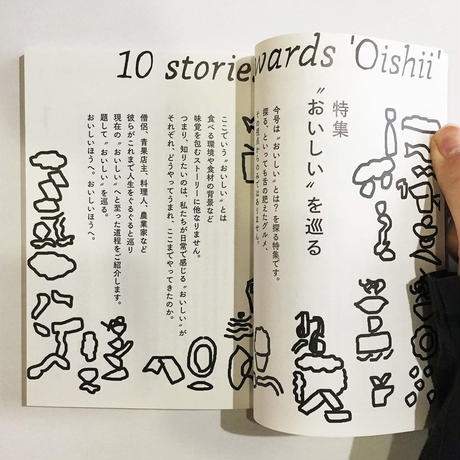 10 stories
wards 'Oishii'
特集
“おいしい”を巡る
今号は“おいしい”とは？を探る特集です。
探る、といっても舌の肥えたグルメ、
ここでいう“おいしい”とは
食べる環境や食材の背景など
味覚を包むストーリーに他なりません。
つまり、知りたいのは、私たちが日常で感じる“おいしい”が
それぞれ、どうやってうまれ、ここまでやってきたのか。
僧侶、青果店主、料理人、農業家など
彼らがこれまで人生をぐるぐると巡り
現在の“おいしい”へと至った道程をご紹介します。
題して“おいしい”を巡る。
おいしいほうへ、おいしいほうへ。